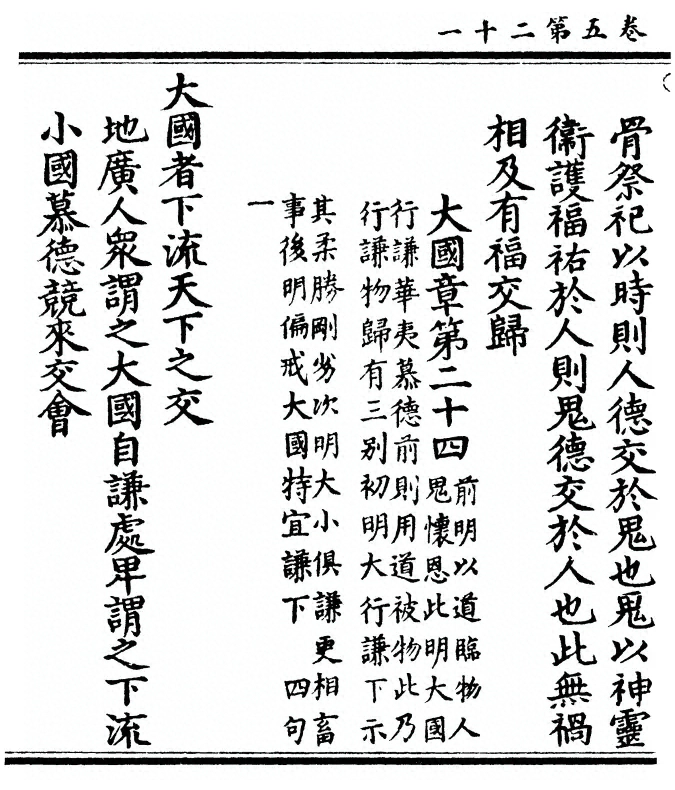 卷五第二十一
骨祭祀以時則人德交於鬼也鬼以神靈
衛護福祐於人則鬼德交於人也此無禍
相及有福交歸
大國章第二十四
前明以道臨物人
鬼懷恩此明大國
行謙華夷慕德前則用道被物此乃
行謙物歸有三別初明大行謙下示
其柔勝剛劣次明大小俱謙更相畜
事後明偏戒大國特宜謙下 四句
一
大國者下流天下之交
地廣人眾謂之大國自謙處卑謂之下流
小國慕德競來交會